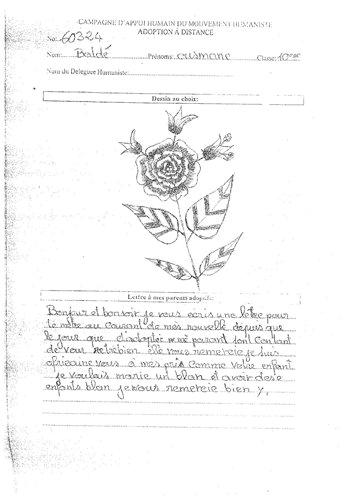 CAMPAGNE D'APPUI HUMAIN DU MOUVEMENT HUMANISTE
ADOPTION À DISTANCE
No: 60324
Nom: Baldé Prénoms: ousmane Classe: 10
Nom du Delegue Humaniste:
Dessin au choix:
Lettre à mes parents adoptifs:
Bonjour et bonsoir je vous ecris une letre pour
te metre au Courant de mes nouvelle depuis que
le jour que parant sont Contant
de vous tretrebien elle vous remercie je suis
africaine vous a mes pris Comme votre enfant
je voulais marie un blan et avoir dese
enfants blan je vous remercie bien